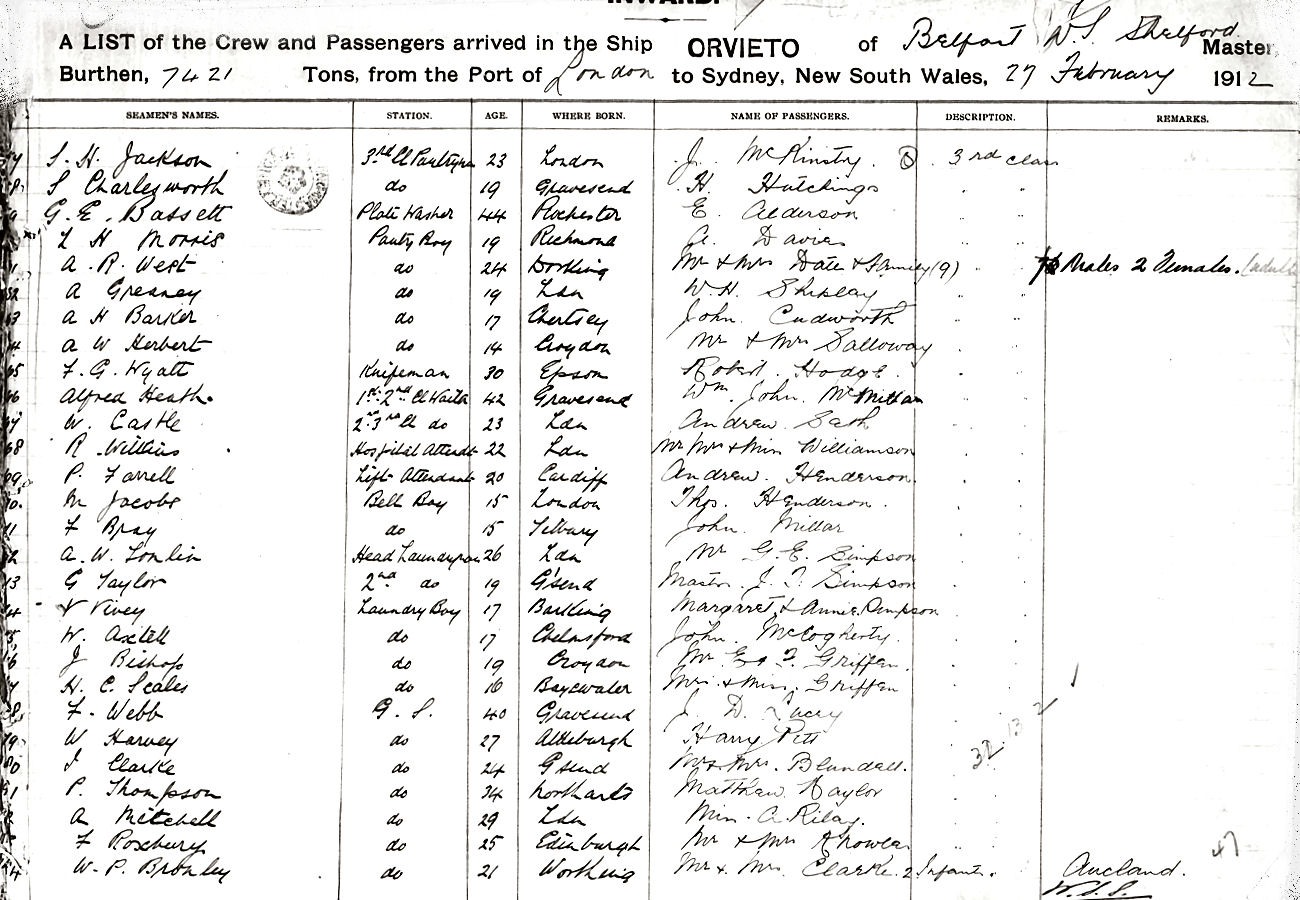 INWARD.
A LIST of the Crew and Passengers arrived in the Ship ORVIETO of Belfast W.S. Shelford Master
Burthen, 7421 Tons, from the Port of London to Sydney, New South Wales, 27 February 1912
SEAMEN'S NAMES. STATION. AGE. WHERE BORN. NAME OF PASSENGERS. DESCRIPTION. REMARKS.
S. H. Jackson 3rd Cl Pantryman 23 London J. McKinstry 3rd class
S Charlesworth do 19 Gravesend H. Hutchings " "
G. E. Bassett Plate Washer 44 Rochester E. Alderson " "
H Morris Pantry Boy 19 Richmond A. Davies " "
A. R. West do 24 Dorking Mr & Mrs Date & Family (9) " Males 2 Females.
A Greaney do 19 Ldn W. H. Shiplay " "
A H Barker do 17 Chertsey John Cudworth " "
A W Herbert do 14 Croydon Mr & Mrs Salloway
F. G. Wyatt Knifeman 30 Epsom Robert Hodge
Alfred Heath. 1st 2nd Cl Waiter 42 Gravesend Wm. John McMillan
W. Castle 2nd 3rd Cl do 23 Ldn Andrew
R Wilkins Hospital Attendt 22 Ldn Mr Mrs & Miss Williamson
P. Farrell Lift Attendant 20 Cardiff Andrew Henderson.
M Jacobs Bell Boy 15 London Thos. Henderson
F Bray do 15 Tilbury John Millar
A. W. Tomlin Head Laundryman 26 Ldn Mr G. E. Simpson
G Taylor 2nd do 19 G'send Master J. Simpson
Vivey Laundry Boy 17 Barking Margaret & Annie Simpson
W. Axtell do 17 Chelmsford John McCogherty.
J Bishop do 19 Croydon Mr Griffen.
H. C. Scales do 16 Bayswater Mrs & Miss Griffen
F. Webb G. S. 40 Gravesend J. D. Lacey
W Harvey do 27 Aldeburgh Harry Pitt
J Clarke do 24 Gsend Mr & Mrs. Blundell. 32 13 2
P. Thompson do 34 Northants Matthew Naylor
A Mitchell do 29 Ldn Miss A. Riley.
F Roxbury do 25 Edinburgh Mr & Mrs 47
W. P. Bromley do 21 Worthing Mr & Mrs. Clarke. 2 Infants. Aucland.
W.S.S.